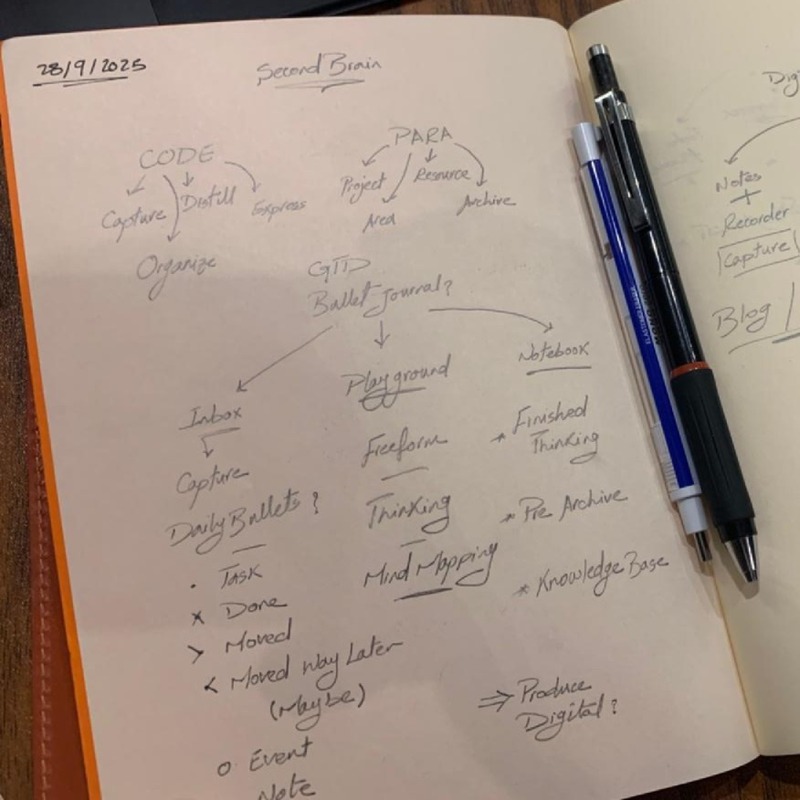 28/9/2025
Second Brain
CODE
Capture
Distill
Express
Organize
PARA
Project
Resource
Area
Archive
GTD
Bullet Journal?
Inbox
Capture
Daily Bullets?
. Task
x Done
> Moved
< Moved Way Later
(Maybe)
o Event
Note
Playground
Freeform
Thinking
Mind Mapping
Notebook
* Finished
Thinking
* Pre Archive
* Knowledge Base
⇒ Produce
Digital?
Digi
Notes
+
Recorder
Capture
Blog /